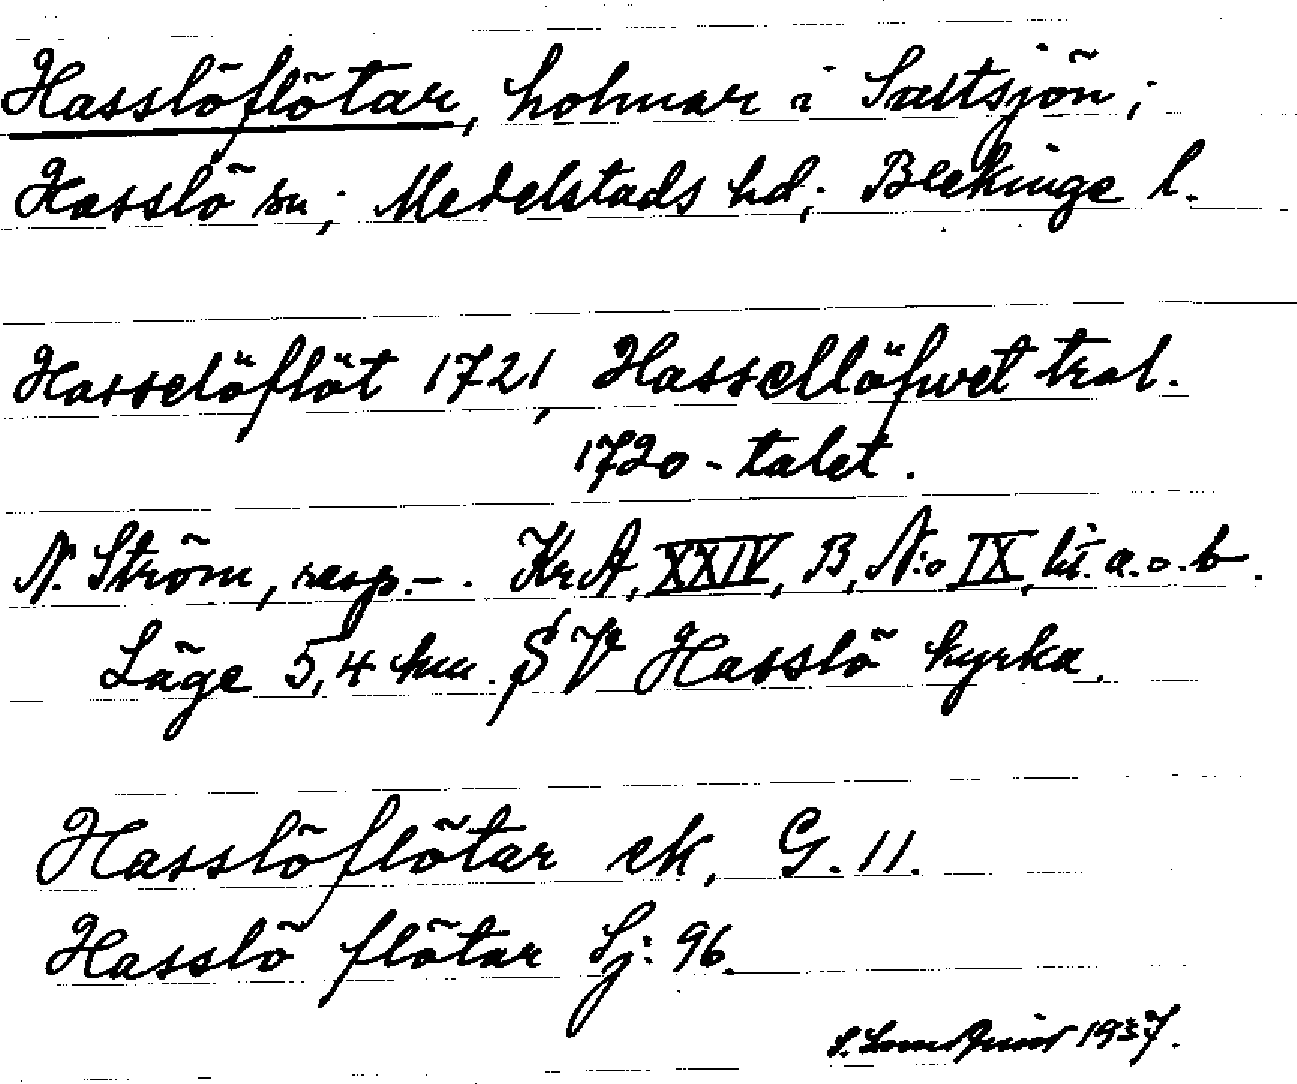 Hasslöflötar, holmar i Saltsjön;
Hasslö sn; Medelstads hd; Blekinge l.
Hasselöflöt 1721, Hassellöfwet tral.
1720-talet.
N. Ström, resp. - . KrA, XXIV, B, N:o IX, lit. a.o.b.
Läge 5,4 km. SV Hasslö kyrka.
Hasslöflötar ek, G. 11.
Hasslö flötar Sj: 96.
1937.